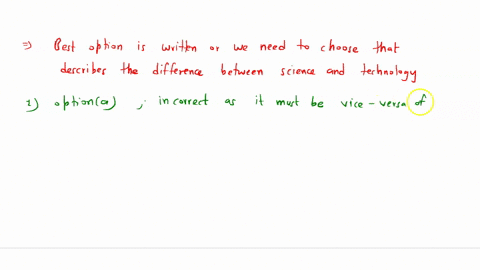 ⇒ Best option is written or we need to choose that
describes the difference between science and technology
1) option(a) , incorrect as it must be vice-versa of